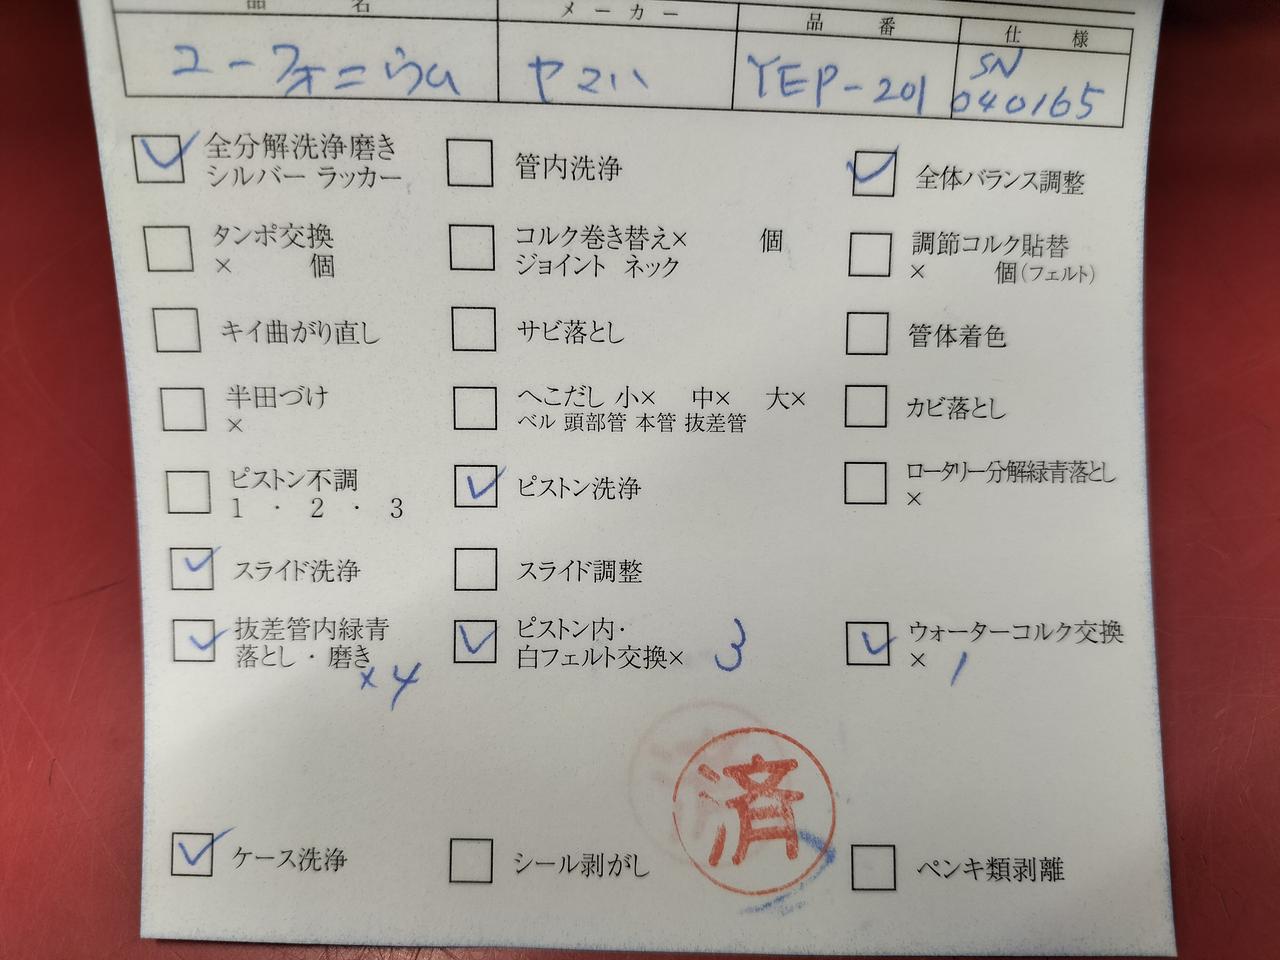 品名 メーカー 品番 仕様
ユーフォニウム ヤマハ YEP-201 SN
040165
全分解洗浄磨き
シルバー ラッカー
管内洗浄
全体バランス調整
タンポ交換
× 個
コルク巻き替え× 個
ジョイント ネック
調節コルク貼替
× 個(フェルト)
キイ曲がり直し
サビ落とし
管体着色
半田づけ
×
へこだし 小× 中× 大×
ベル 頭部管 本管 抜差管
カビ落とし
ピストン不調
1 ・ 2 ・ 3
ピストン洗浄
ロータリー分解緑青落とし
×
スライド洗浄
スライド調整
抜差管内緑青
落とし・磨き
×4
ピストン内・
白フェルト交換× 3
ウォーターコルク交換
× 1
済
ケース洗浄
シール剥がし
ペンキ類剥離